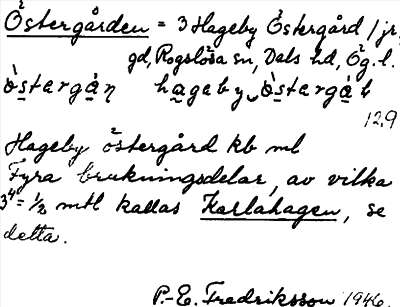 Östergården = 3 Hageby Östergård / jr,
gd, Rogslösa sn, Dals hd, Ög. l.
òstergȧ̀ṇ hageby òstergȧ̀ḍ
12,9
Hageby östergård kb ml
Fyra brukningsdelar, av vilka
3⁴ = ½ mtl kallas Karlahagen, se
detta.
P.-E. Fredriksson 1946.